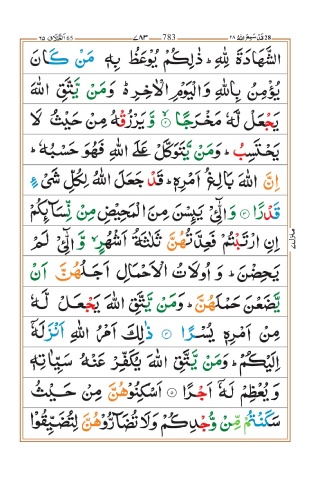 قد سمع الله ٢٨ 783 ٧٨٣ الطلاق ٦٥
الشَّهَادَةَ لِلّٰهِ ؕ ذٰلِكُمْ يُوْعَظُ بِهٖ مَنْ كَانَ
يُؤْمِنُ بِاللّٰهِ وَالْيَوْمِ الْاٰخِرِ ؕ وَمَنْ يَّتَّقِ اللّٰهَ
يَجْعَلْ لَّهٗ مَخْرَجًا ۙ‏ وَّ يَرْزُقْهُ مِنْ حَيْثُ لَا
يَحْتَسِبُ ؕ وَمَنْ يَّتَوَكَّلْ عَلَى اللّٰهِ فَهُوَ حَسْبُهٗ ؕ
اِنَّ اللّٰهَ بَالِغُ اَمْرِهٖ ؕ قَدْ جَعَلَ اللّٰهُ لِكُلِّ شَىْءٍ
قَدْرًا ۳ وَالّٰٓـِٔىْ يَئِسْنَ مِنَ الْمَحِيْضِ مِنْ نِّسَآئِكُمْ
اِنِ ارْتَبْتُمْ فَعِدَّتُهُنَّ ثَلٰثَةُ اَشْهُرٍ ۙ وَّالّٰٓـِٔىْ لَمْ
يَحِضْنَ ؕ وَ اُولَاتُ الْاَحْمَالِ اَجَلُهُنَّ اَنْ
يَّضَعْنَ حَمْلَهُنَّ ؕ وَمَنْ يَّتَّقِ اللّٰهَ يَجْعَلْ لَّهٗ
مِنْ اَمْرِهٖ يُسْرًا ۴ ذٰلِكَ اَمْرُ اللّٰهِ اَنْزَلَهٗۤ
اِلَيْكُمْ ؕ وَمَنْ يَّتَّقِ اللّٰهَ يُكَفِّرْ عَنْهُ سَيِّاٰتِهٖ
وَيُعْظِمْ لَهٗۤ اَجْرًا ۵ اَسْكِنُوْهُنَّ مِنْ حَيْثُ
سَكَنْتُمْ مِّنْ وُّجْدِكُمْ وَلَا تُضَآرُّوْهُنَّ لِتُضَيِّقُوْا